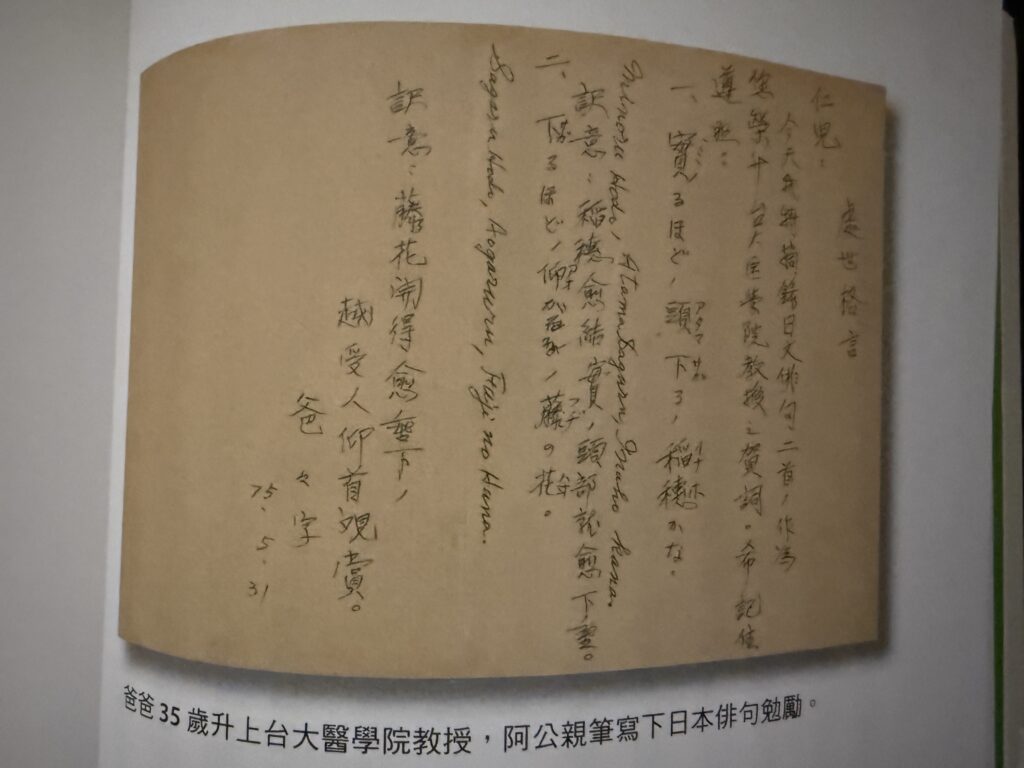 處世格言
仁兒：
今天我特摘錄日文俳句二首，作為
您榮升台大医学院教授之賀詞。希記住
遵照。
一、實るほど，頭下る，稲穂かな。
Minoru Hodo, Atama Sagaru, Inaho Kana.
訳意：稻穗愈結實，頭部就愈下垂。
二、下るほど，仰がるる，藤の花。
Sagaru Hodo, Aogaruru, Fuji no Hana.
訳意：藤花開得愈垂下，
越受人仰首观賞。
爸々字
75.5.31
爸爸35歲升上台大醫學院教授，阿公親筆寫下日本俳句勉勵。